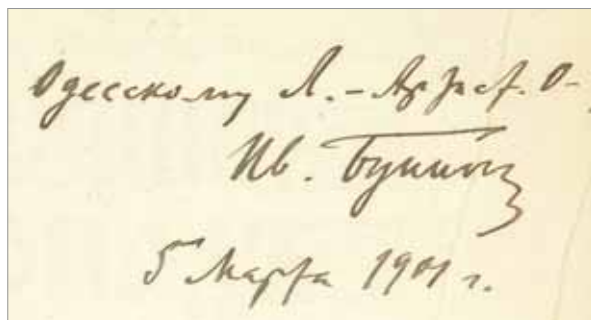 Одесскому Л.-Артист. О-
Ив. Бунин
5 Марта 1901 г.